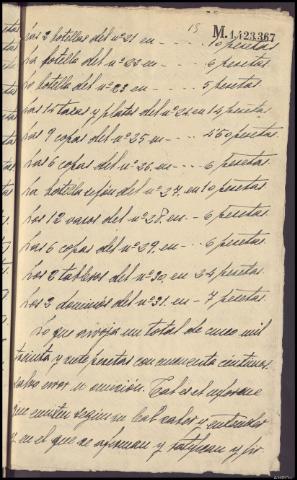 15
M.1,423,367
Las 2 botellas del nº 21 en - - - 10 pesetas
La botella del nº 22 en - - - 6 pesetas
La botella del nº 23 en - - - 5 pesetas
Las 14 tazas y platos del nº 24 en 14 pesetas
Las 9 copas del nº 25 en - - - 4'50 pesetas
Las 6 copas del nº 26. en - - - 6 pesetas.
La botella sifón del nº 27. en 10 pesetas
Los 12 vasos del nº 28. en - 6 pesetas
Las 6 copas del nº 29. en - - 6 pesetas
Los 2 tableros del nº 30, en 24 pesetas
Los 2 dominos del nº 31. en - 7 pesetas
Lo que arroja un total de cinco mil
treinta y siete pesetas con cincuenta centimos.
salvo error u omisión. Tal es el informe
que emiten según su leal saber y entender
y en el que se afirman y ratifican y fir